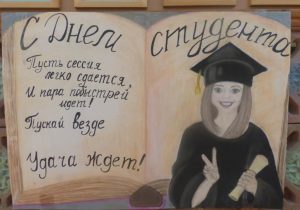 С Днем студента
Пусть сессия
легко сдается,
И пара побыстрей
идет!
Пускай везде
Удача ждет!